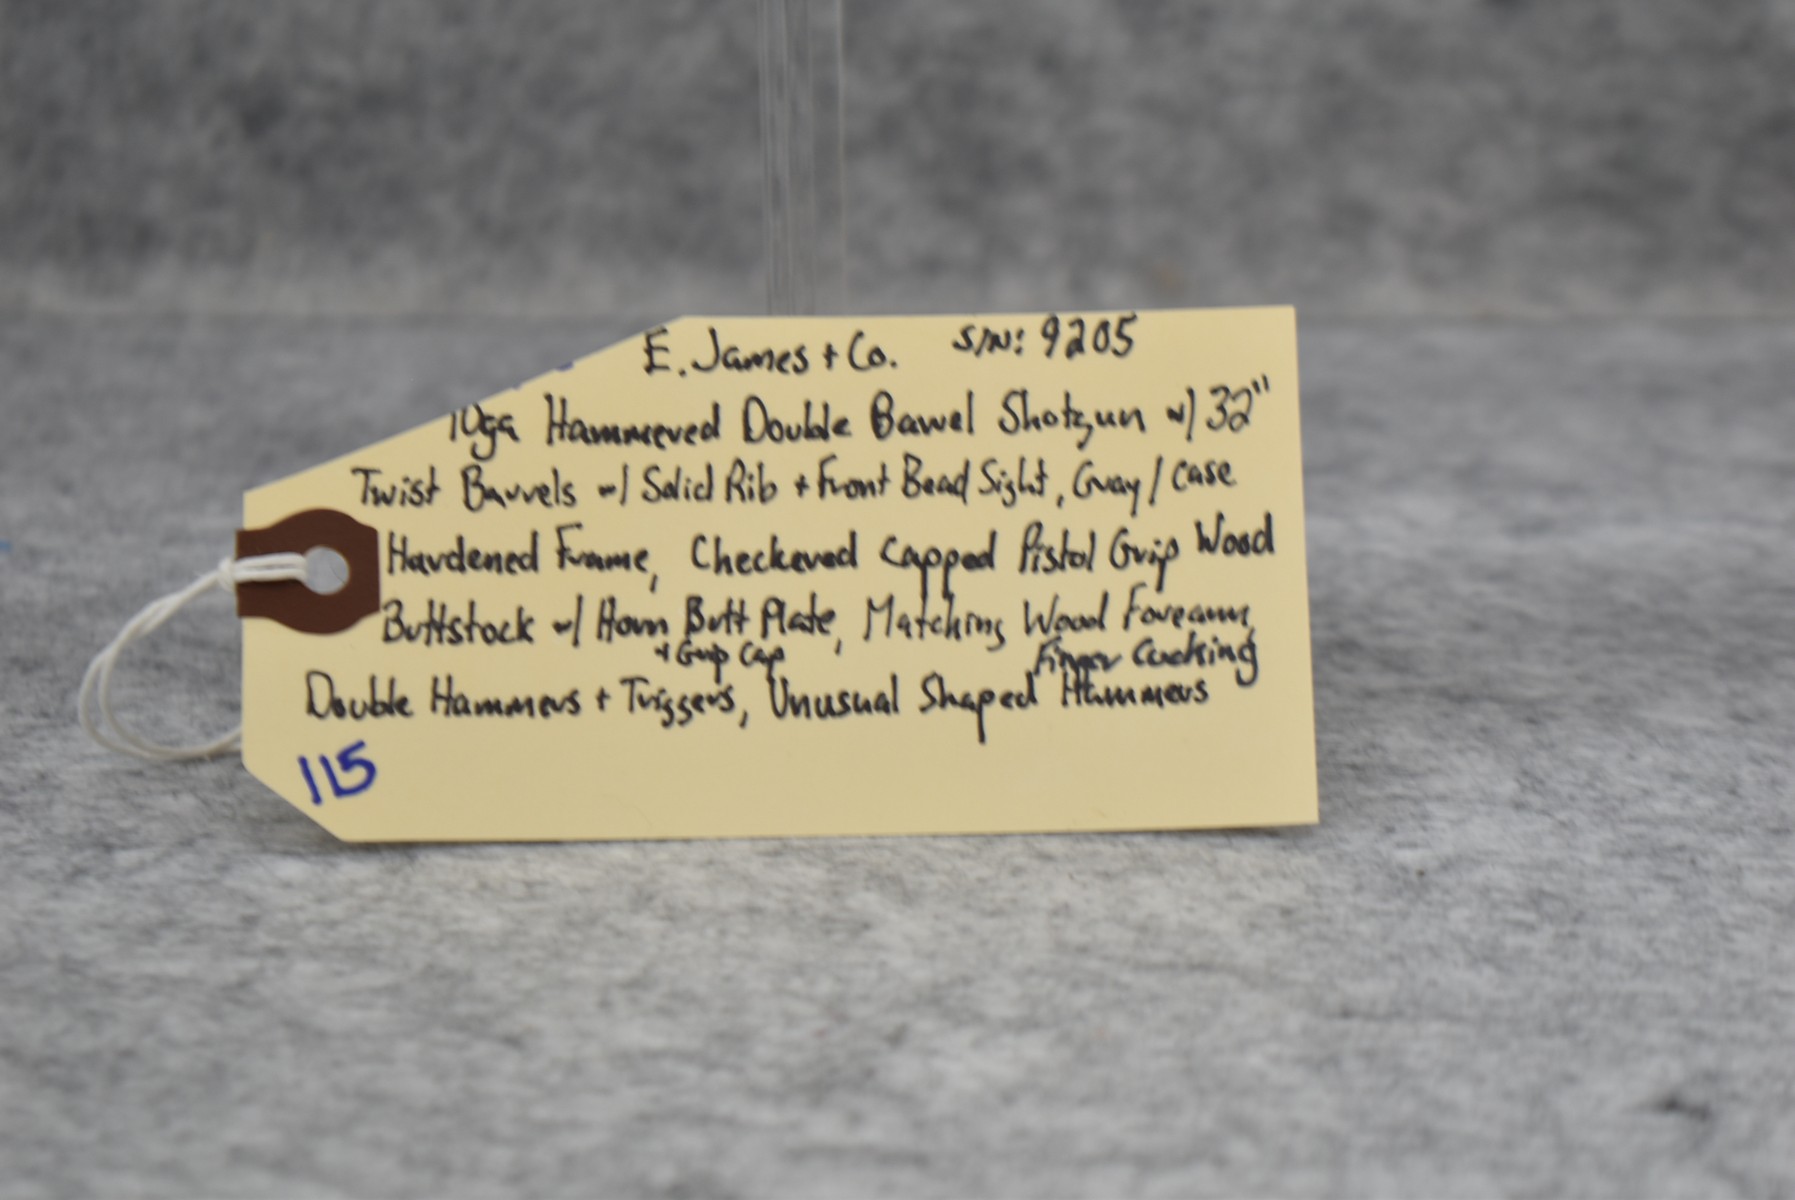 E. James + Co. S/N: 9205
10ga Hammered Double Barrel Shotgun w/ 32"
Twist Barrels w/ Solid Rib + Front Bead Sight, Gray / Case
Hardened Frame, Checkered Capped Pistol Grip Wood
Buttstock w/ Horn Butt Plate, Matching Wood Forearm,
+ Grip Cap Finger Cocking
Double Hammers + Triggers, Unusual Shaped Hammers
115